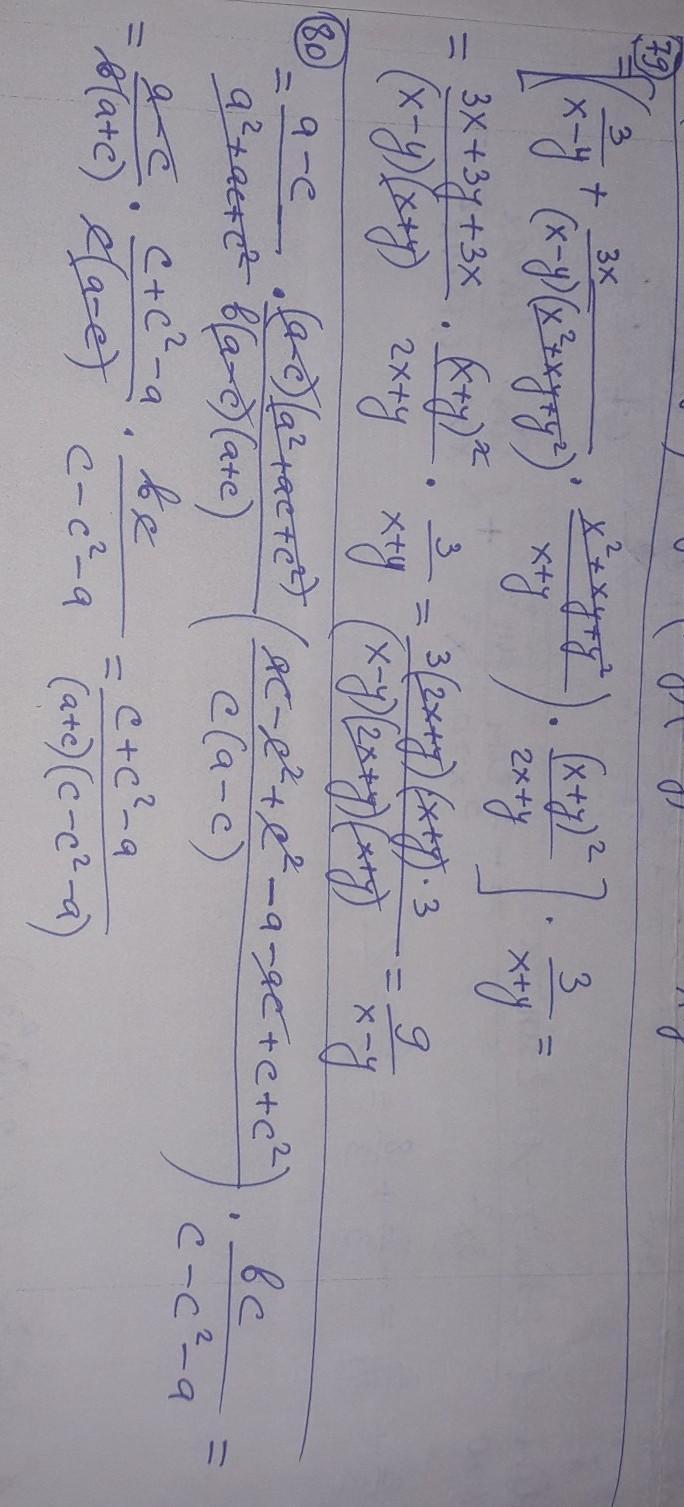 79
= [(3/(x-y) + 3x/((x-y)(x²+xy+y²)) · (x²+xy+y²)/(x+y)) · (x+y)²/(2x+y)] · 3/(x+y) =
= (3x+3y+3x)/((x-y)(x+y)) · (x+y)²/(2x+y) · 3/(x+y) = (3(2x+y)(x+y)·3)/((x-y)(2x+y)(x+y)) = 9/(x-y)
80
= (a-c)/(a²+ac+c²) · ((a-c)(a²+ac+c²))/(b(a-c)(a+c)) ((ac-c²+c²-a-ac+c+c²)/(c(a-c))) · bc/(c-c²-a) =
= (a-c)/(b(a+c)) · (c+c²-a)/(c(a-c)) · bc/(c-c²-a) = (c+c²-a)/((a+c)(c-c²-a))